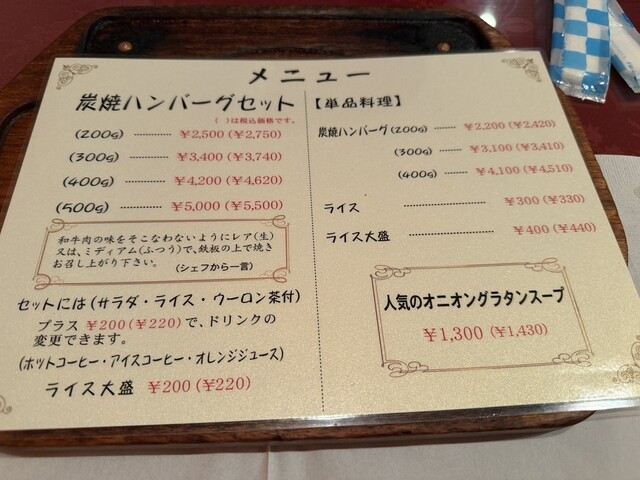 メニュー
炭焼ハンバーグセット
( )は税込価格です。
(200g) ………… ¥2,500 (¥2,750)
(300g) ………… ¥3,400 (¥3,740)
(400g) ………… ¥4,200 (¥4,620)
(500g) ………… ¥5,000 (¥5,500)
和牛肉の味をそこなわないようにレア(生)
又は、ミディアム(ふつう)で、鉄板の上で焼き
お召し上がり下さい。 (シェフから一言)
セットには(サラダ・ライス・ウーロン茶付)
プラス ¥200 (¥220) で、ドリンクの
変更できます。
(ホットコーヒー・アイスコーヒー・オレンジジュース)
ライス大盛 ¥200 (¥220)
【単品料理】
炭焼ハンバーグ (200g) …… ¥2,200 (¥2,420)
(300g) …… ¥3,100 (¥3,410)
(400g) …… ¥4,100 (¥4,510)
ライス ………………… ¥300 (¥330)
ライス大盛 ………………… ¥400 (¥440)
人気のオニオングラタンスープ
¥1,300 (¥1,430)